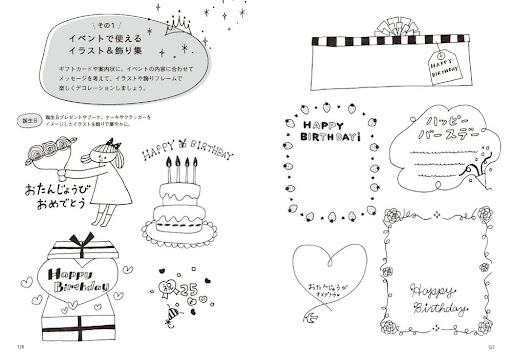 その1
イベントで使える
イラスト&飾り集
ギフトカードや案内状に。イベントの内容に合わせて
メッセージを考えて、イラストや飾りフレームで
楽しくデコレーションしましょう。
誕生日
誕生日プレゼントやブーケ、ケーキやクラッカーを
イメージしたイラスト&飾りで華やかに。
おたんじょうび
おめでとう
HAPPY BIRTHDAY
Happy
Birthday
祝
25
126
HAPPY
BIRTHDAY
HAPPY
BIRTHDAY!
ハッピー
バースデー
おたんじょうび
オメデトウ
Happy
Birthday
127